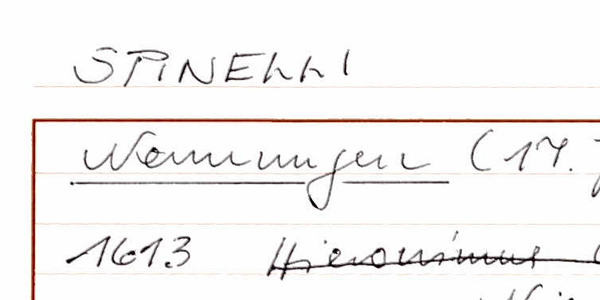 SPINELLI
Nennungen (17.
1613 Hieronimus